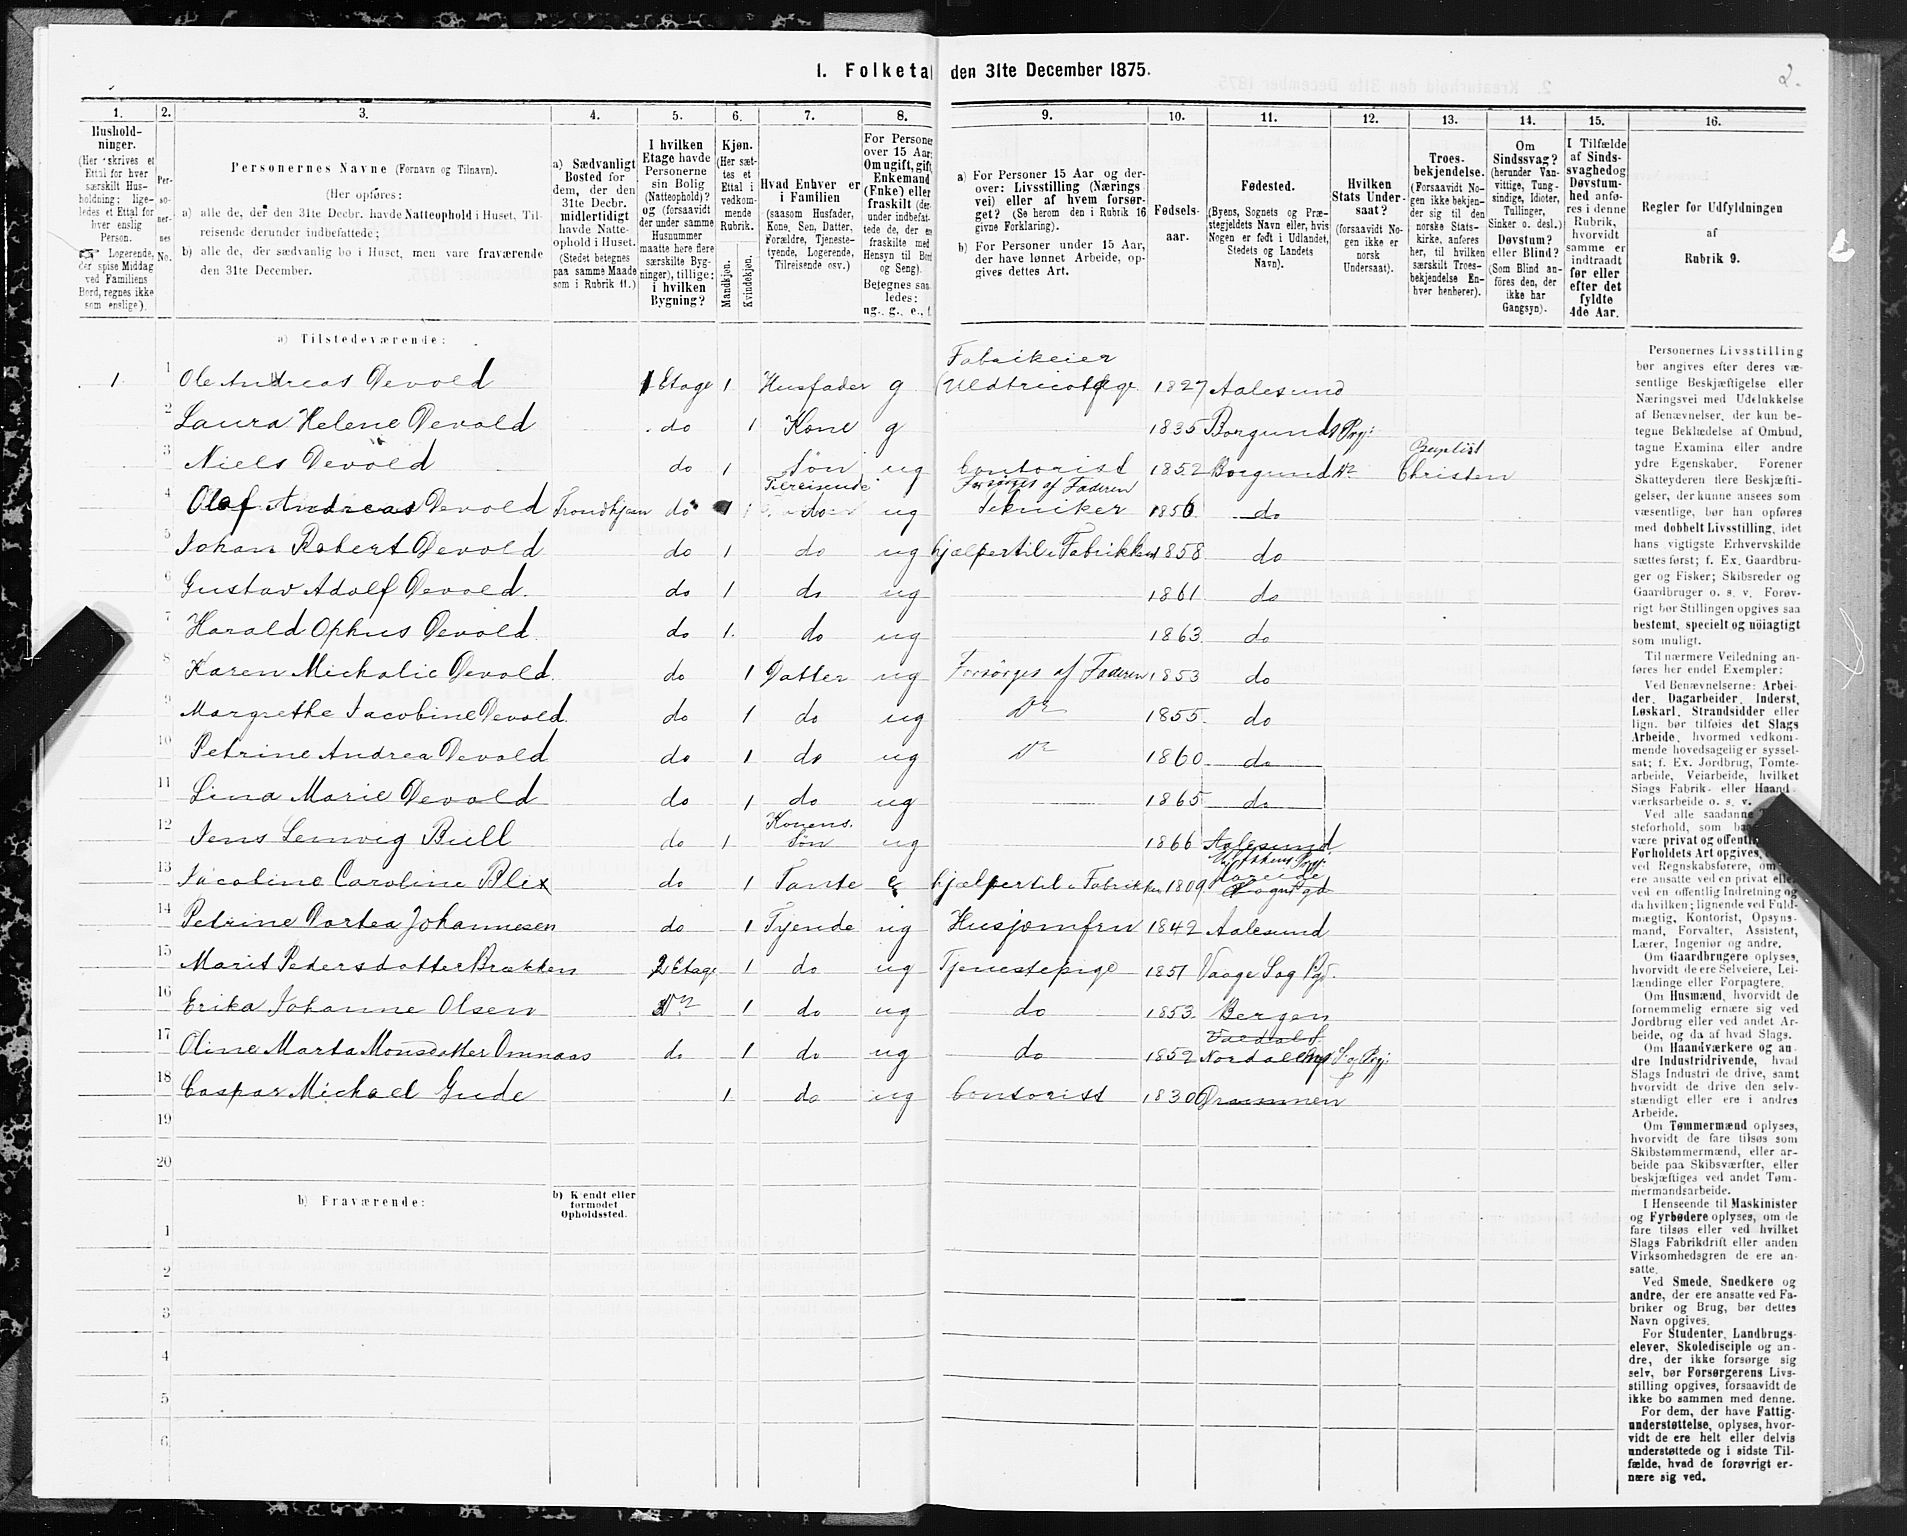 I. Folketa den 31te December 1875.
2.
1. 2. 3. 4. 5. 6. 7. 8. 9. 10. 11. 12. 13. 14. 15. 16.
Hushold-
ninger.
(Her skrives et
Ettal for hver
særskilt Hus-
holdning; lige-
ledes et Ettal for
hver enslig
Person.
Logerende,
der spise Middag
ved Familiens
Bord, regnes ikke
som enslige).
Per-
so-
ner-
nes
No.
Personernes Navne (Fornavn og Tilnavn).
(Her opføres:
a) alle de, der den 31te Decbr. havde Natteophold i Huset, Til-
reisende derunder indbefattede;
b) alle de, der sædvanlig bo i Huset, men vare fraværende
den 31te December.
a) Sædvanligt
Bosted for
dem, der den
31te Decbr.
midlertidigt
havde Natte-
ophold i Huset.
(Stedet betegnes
paa samme Maade
som i Rubrik 11.)
I hvilken
Etage havde
Personerne
sin Bolig
(Natteophold)?
og (forsaavidt
der under samme
Husnummer
maatte høre flere
særskilte Byg-
ninger), tillige:
i hvilken
Bygning?
Kjøn.
(Her sæt-
tes et
Ettal i
vedkom-
mende
Rubrik.
Mandkjøn.
Kvindekjøn.
Hvad Enhver er
i Familien
(saasom Husfader,
Kone, Søn, Datter,
Forældre, Tjeneste-
tyende, Logerende,
Tilreisende osv.)
For Persone
over 15 Aar:
Om ugift, gift
Enkemand
(Enke) eller
fraskilt (der-
under indbefat-
tede de, der er
fraskilte med
Hensyn til Bord
og Seng).
Betegnes saa-
ledes:
ug., g., e., f.
a) For Personer 15 Aar og der-
over: Livsstilling (Nærings-
vei) eller af hvem forsør-
get? (Se herom den i Rubrik 16
givne Forklaring).
b) For Personer under 15 Aar,
der have lønnet Arbeide, op-
gives dettes Art.
Fødsels-
aar.
Fødested.
(Byens, Sognets og Præ-
stegjeldets Navn eller, hvis
Nogen er født i Udlandet,
Stedets og Landets
Navn).
Hvilken
Stats Under-
saat?
(forsaavidt No-
gen ikke er
norsk
Undersaat).
Troes-
bekjendelse.
(Forsaavidt No-
gen ikke bekjen-
der sig til den
norske Stats-
kirke, anføres
her, til hvilken
særskilt Troes-
bekjendelse En-
hver henhører).
Om
Sindssvag?
(herunder Van-
vittige, Tung-
sindige, Idioter,
Tullinger,
Sinker o. desl.)
Døvstum?
eller Blind?
(Som Blind an-
føres den, der
ikke har
Gangsyn).
I Tilfælde
af Sinds-
svaghed og
Døvstum-
hed anfø-
res i denne
Rubrik,
hvorvidt
samme er
indtraadt
før eller
efter det
fyldte
4de Aar.
Regler for Udfyldningen
af
Rubrik 9.
a) Tilstedeværende:
1 1 Ole Andreas Devold 1 Etage 1 Husfader g Fabrikeier (Uldtricotfge 1827 Aalesund
2 Laura Helene Devold do 1 Kone g 1835 Borgunds Pgj:
3 Niels Devold do 1 Søn ug Contorist 1852 Borgund do Baptist Christen
4 Olaf Andreas Devold Trondhjem do 1 Tilreisende do ug Forsørges af Faderen Tekniker 1856 do
5 Johan Robert Devold do 1 do ug hjælper til i Fabrikken 1858 do
6 Gustav Adolf Devold do 1 do ug 1861 do
7 Harald Ophus Devold do 1 do ug 1863 do
8 Karen Michalie Devold do 1 Datter ug Forsørges af Faderen 1853 do
9 Margrethe Jacobine Devold do 1 do ug Do 1855 do
10 Petrine Andrea Devold do 1 do ug Do 1860 do
11 Lina Marie Devold do 1 do ug 1865 do
12 Jens Lemvig Bull do 1 Konens Søn ug 1866 Aalesund
13 Jacobine Caroline Blix do 1 Tante e hjælper til i Fabrikken 1809 Hareide
14 Petrine Dortea Johannesen do 1 Tyende ug Husjomfru 1842 Aalesund
15 Marit Pedersdatter Brækken 2 Etage 1 do ug Tjenestepige 1851 Vaage S og Pgj.
16 Erika Johanne Olsen Do 1 do ug do 1853 Bergen
17 Oline Marta Monsdatter Omnaas do 1 do ug do 1852 Nordalens S. og Pgj:
18 Caspar Michael Gude 1 do ug Contorist 1830 Drammen
19
20
b) Fraværende:
b) Kjendt eller
formodet
Opholdssted.
1
2
3
4
5
6
Personernes Livsstilling
bør angives efter deres væ-
sentlige Beskjæftigelse eller
Næringsvei med Udelukkelse
af Benævnelser, der kun be-
tegne Beklædelse af Ombud,
tagne Examina eller andre
ydre Egenskaber. Forener
Skatteyderen flere Beskjæfti-
gelser, der kunne ansees som
væsentlige, bør han opføres
med dobbelt Livsstilling, idet
hans vigtigste Erhvervskilde
sættes først; f. Ex. Gaardbru-
ger og Fisker; Skibsreder og
Gaardbruger o. s. v. Forøv-
rigt bør Stillingen opgives saa
bestemt, specielt og nöiagtigt
som muligt.
Til nærmere Veiledning an-
føres her endel Exempler:
Ved Benævnelserne: Arbei-
der, Dagarbeider, Inderst,
Løskarl, Strandsidder eller
lign. bør tilføies det Slags
Arbeide, hvormed vedkom-
mende hovedsagelig er syssel-
sat; f. Ex. Jordbrug, Tomte-
arbeide, Veiarbeide, hvilket
Slags Fabrik- eller Haand-
værksarbeide o. s. v.
Ved alle saadanne
steforhold, som
være privat og offentlig
Forholdets Art opgives,
ved Regnskabsførere, om
ere ansatte ved en privat eller
ved en offentlig Indretning og
da hvilken; lignende ved Fuld-
mægtig, Kontorist, Opsyns-
mand, Forvalter, Assistent,
Lærer, Ingeniør og andre.
Om Gaardbrugere oplyses,
hvorvidt de ere Selveiere, Lei-
lændinge eller Forpagtere.
Om Husmænd, hvorvidt de
fornemmelig ernære sig ved
Jordbrug eller ved andet Ar-
beide, og da af hvad Slags.
Om Haandværkere og an-
dre Industridrivende, hvad
Slags Industri de drive, samt
hvorvidt de drive den selv-
stændigt eller ere i andres
Arbeide.
Om Tømmermænd oplyses,
hvorvidt de fare tilsøs som
Skibstømmermænd, eller ar-
beide paa Skibsværfter, eller
beskjæftiges ved andet Tøm-
mermandsarbeide.
I Henseende til Maskinister
og Fyrbødere oplyses, om de
fare tilsøs eller ved hvilket
Slags Fabrikdrift eller anden
Virksomhedsgren de ere an-
satte.
Ved Smede, Snedkere og
andre, der ere ansatte ved Fa-
briker og Brug, bør dettes
Navn opgives.
For Studenter, Landbrugs-
elever, Skoledisciple og an-
dre, der ikke forsørge sig
selv, bør Forsørgerens Livs-
stilling opgives, forsaavidt de
ikke bo sammen med denne.
For dem, der have Fattig-
understøttelse, oplyses, hvor-
vidt de ere helt eller delvis
understøttede og i sidste Til-
fælde, hvad de forøvrigt er-
nære sig ved.